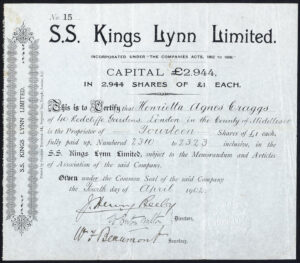 No 15
S.S. Kings Lynn Limited.
INCORPORATED UNDER "THE COMPANIES ACTS, 1862 TO 1898."
CAPITAL £2,944,
IN 2,944 SHARES OF £1 EACH.
This is to Certify that Henrietta Agnes Craggs
of 40 Redcliffe Gardens, London in the County of Middlesex
is the Proprietor of Fourteen Shares of £1 each,
fully paid up, Numbered 2310 to 2323 inclusive, in the
S.S. Kings Lynn Limited, subject to the Memorandum and Articles
of Association of the said Company.
Given under the Common Seal of the said Company
the Fourth day of April
Directors.
W. J. Beaumont
Secretary.
S.S. KINGS LYNN LIMITED.